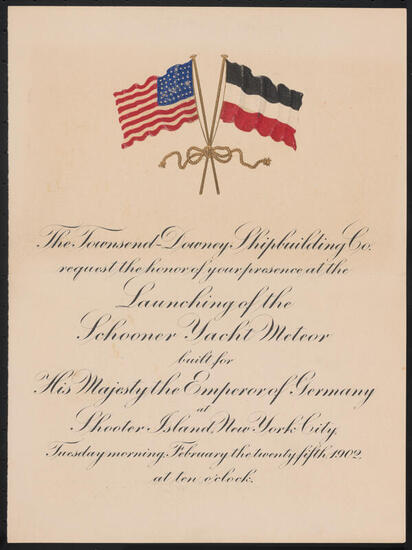 The Townsend-Downey Shipbuilding Co.
request the honor of your presence at the
Launching of the
Schooner Yacht Meteor
built for
His Majesty the Emperor of Germany
at
Shooter Island, New York City,
Tuesday morning, February the twenty fifth, 1902,
at ten o'clock.